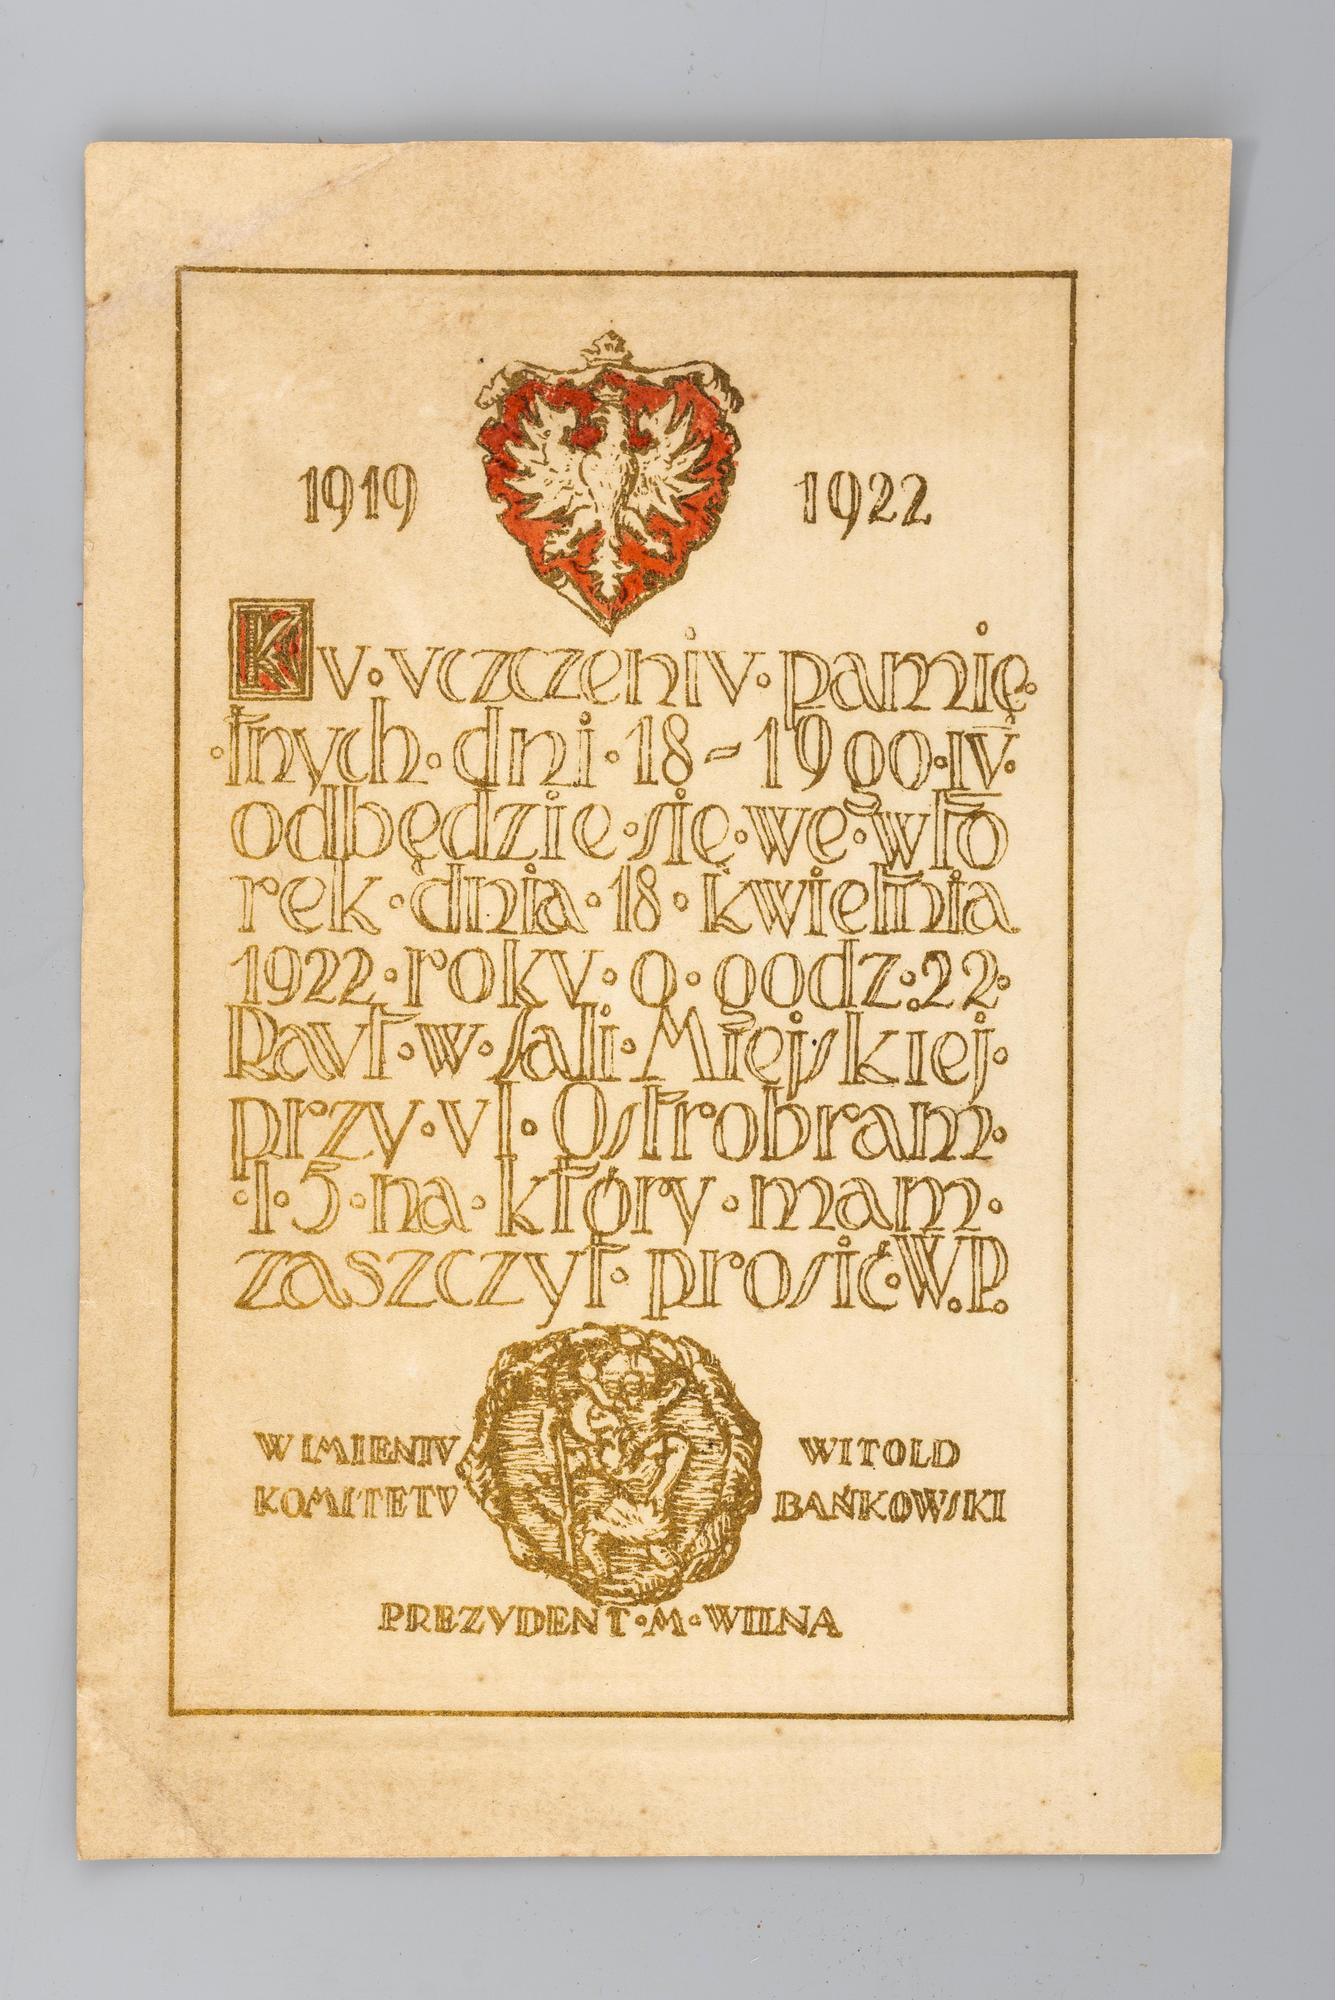 1919 1922
Kv·vczczeniv·pamię·
·tnych·dni·18-19go·IV·
odbędzie·się·we·wto
rek·dnia·18·kwietnia
1922·rokv·o·godz·22·
Ravt·w·Sali·Miejskiej·
przy·vl·Ostrobram·
·l·5·na·który·mam·
zaszczyt·prosić·W.P.
W IMIENIV
KOMITETV
WITOLD
BAŃKOWSKI
PREZYDENT·M·WILNA